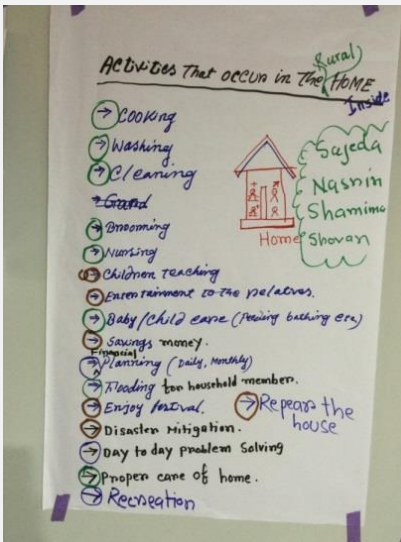 Activities That occur in The Rural HOME
Inside
→ Cooking
→ Washing
→ Cleaning
→ Brooming
→ Nursing
→ Children teaching
→ Entertainment to the relatives.
→ Baby/Child care (Feeding bathing etc)
→ Savings money.
→ Financial Planning (Daily, Monthly)
→ Fooding for household member.
→ Enjoy festival.
→ Repears the
house
→ Disaster Mitigation.
→ Day to day problem Solving
→ Proper care of home.
→ Recreation
Home
Sajeda
Nasrin
Shamima
Shovan